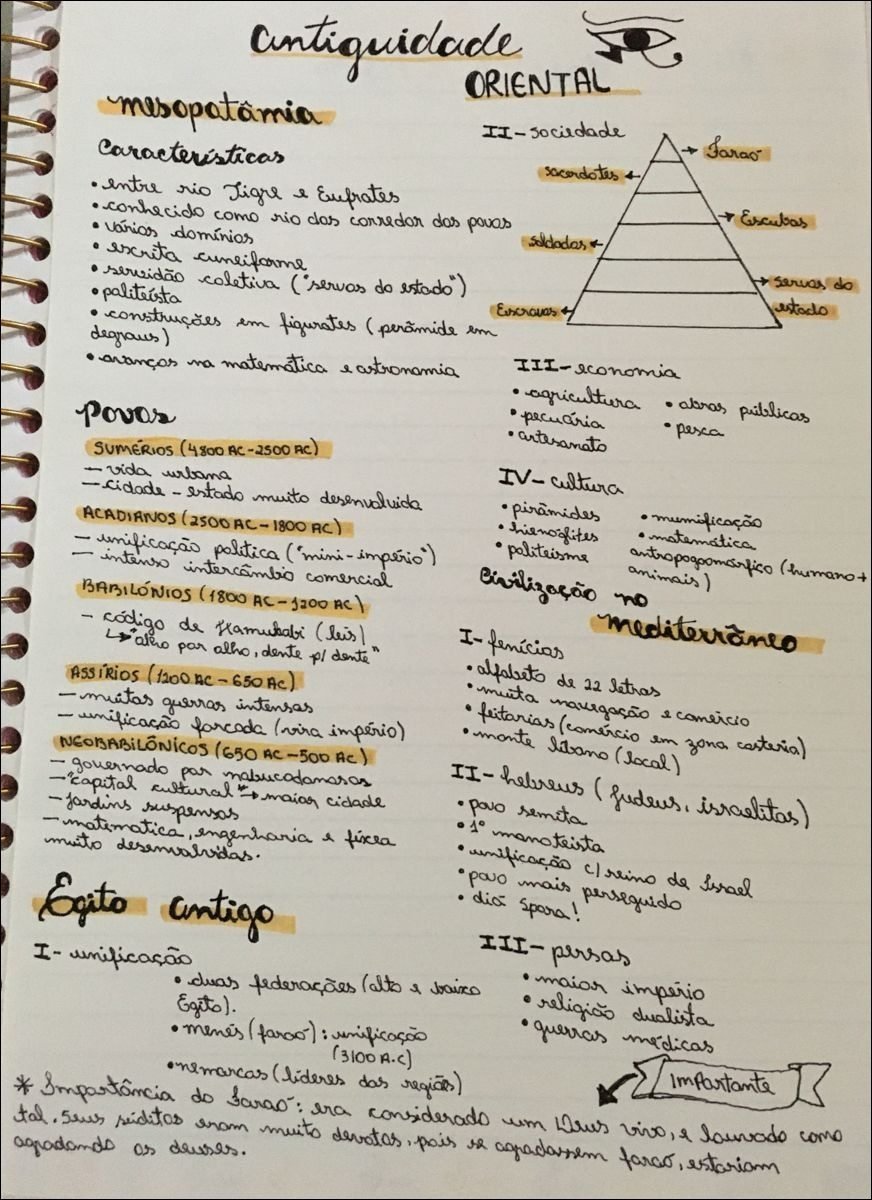 antiguidade
ORIENTAL
mesopotâmia
Características
• entre rio Tigre e Eufrates
• conhecido como rio dos corredor dos povos
• vários domínios
• escrita cuneiforme
• servidão coletiva ("servos do estado")
• politeísta
• construções em figurates (perâmide em
degraus)
• avanços na matemática e astronomia
Povos
SUMÉRIOS (4800 AC - 2500 AC)
- vida urbana
- cidade - estado muito desenvolvida
ACADIANOS (2500 AC - 1800 AC)
- unificação política ("mini-império")
- intenso intercâmbio comercial
BABILÓNIOS (1800 AC - 1200 AC)
- código de Hamurabi (leis)
↳ "olho por olho, dente p/ dente"
ASSÍRIOS (1200 AC - 650 AC)
- muitas guerras intensas
- unificação forçada (vira império)
NEOBABILÔNICOS (650 AC - 500 AC)
- governado por nabucodonosos
- "capital cultural" → maior cidade
- Jardins suspensos
- matematica, engenharia e física
muito desenvolvidas.
Egito antigo
I - unificação
• duas federações (alto e baixo
Egito).
• menés (faraó): unificação
(3100 A.C)
• nemarcas (líderes das regiões)
II - sociedade
Faraó
sacerdotes
Escribas
soldados
servos do
estado
Escravos
III - economia
• agricultura • obras públicas
• pecuária • pesca
• artesanato
IV - cultura
• pirâmides • mumificação
• hieroglifes • matemática
• politeísmo antropozoomórfico (humano +
animais)
Civilização no
mediterrâneo
I - fenícios
• alfabeto de 22 letras
• muita navegação e comércio
• feitorias (comércio em zona costeria)
• monte líbano (local)
II - hebreus (judeus, israelitas)
• povo semita
• 1º monoteísta
• unificação c/ reino de Israel
• povo mais perseguido
• diáspora!
III - persas
• maior império
• religião dualista
• guerras médicas
Importante
* Importância do faraó: era considerado um Deus vivo, e louvado como
tal. Seus súditos eram muito devotos, pois se agradassem faraó, estariam
agradando os deuses.